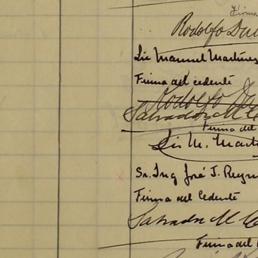 Firma
Rodolfo
Lic Manuel Martinez
Firma del cedente
Rodolfo
Salvador M. C
Firma del
Lic M. Mart
Sr. Ing José J. Reyn
Firma del Cedente
Salvador M. C
Firma del